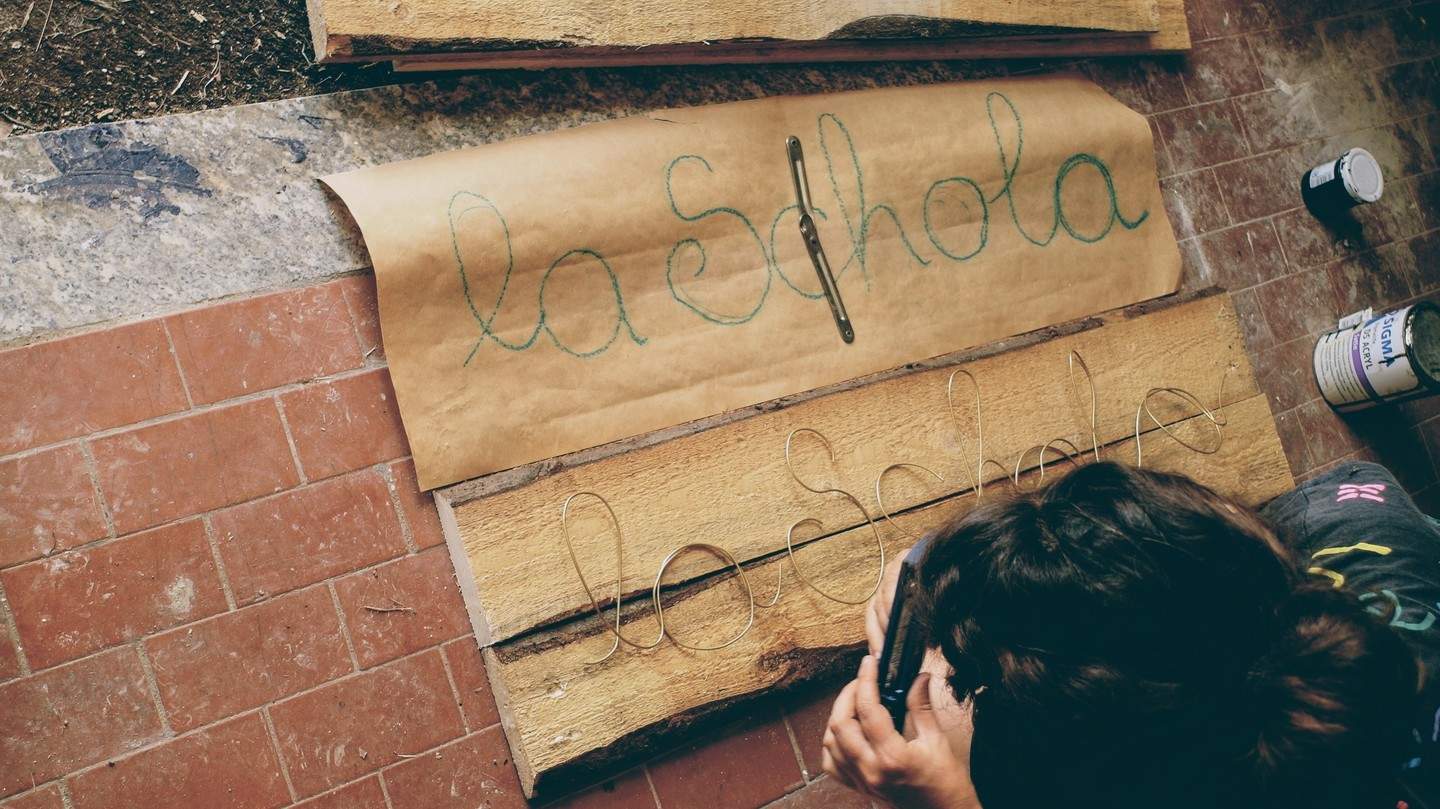 la Schola
la Schola
SIGMA
DS ACRYL